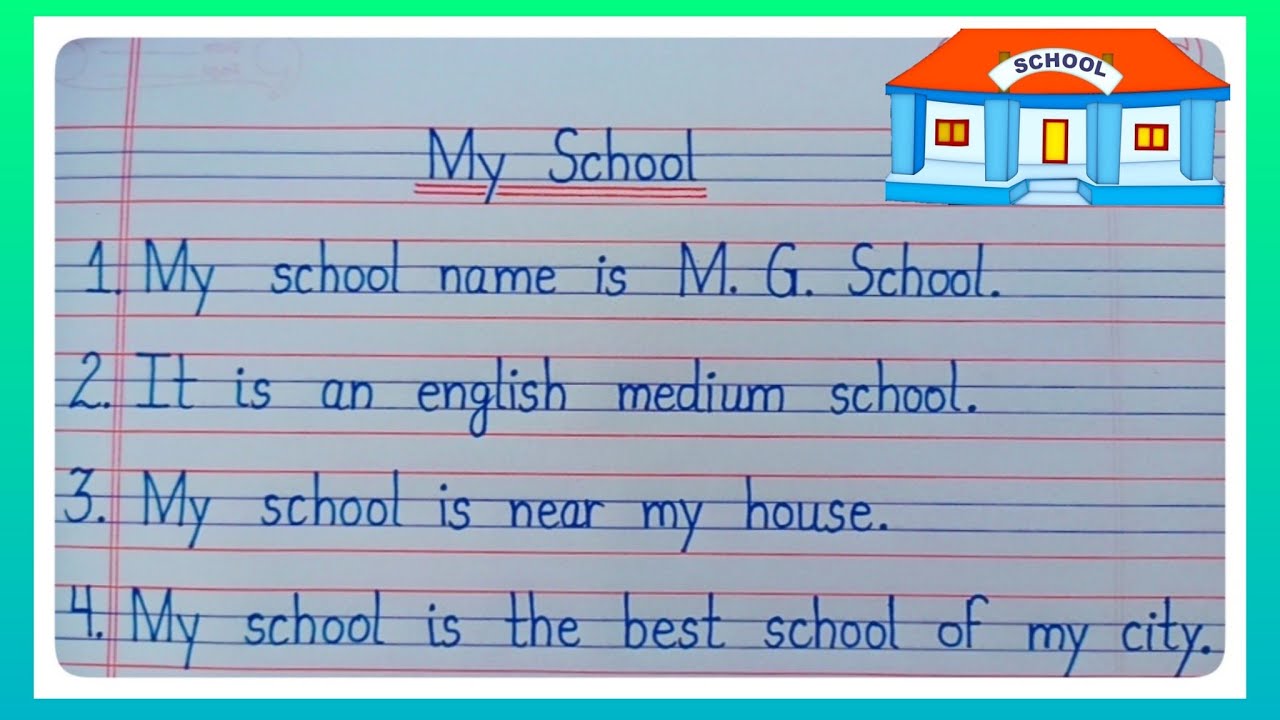 SCHOOL
My School
1. My school name is M. G. School.
2. It is an english medium school.
3. My school is near my house.
4. My school is the best school of my city.